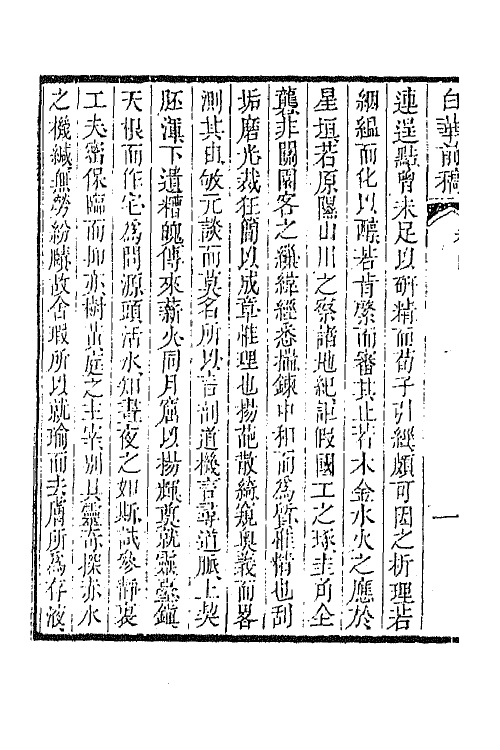 白華前稿
一
連逞點曾未足以硏精而荀子引經頗可因之析理若
絪縕而化以醲若肯綮而審其止若木金水火之應於
星垣若原隰山川之察諸地紀詎假國工之琢圭可全
蠶非關園客之繅緯經悉攟鍊中和而爲質惟情也刮
垢磨光裁狂簡以成章惟理也揚葩散綺窺奧義而畧
測其由敏元談而莫名所以言剖道機言尋道脈上契
胚渾下遺糟魄傳來薪火同月窟以揚輝奠就靈臺鎭
天根而作宅爲問源頭活水知晝夜之如斯試參靜裏
工夫密保臨而抑亦樹黃庭之主宰別具靈奇探赤水
之機緘無勞紛賾故舍瑕所以就瑜而去膚所爲存液